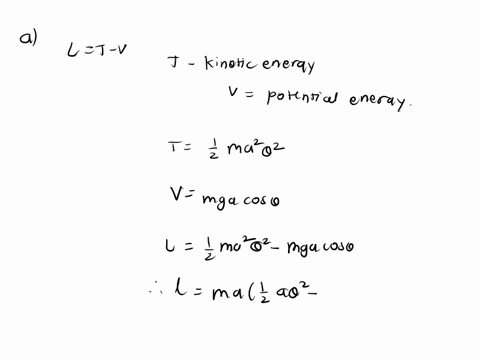 a)
L = T - V
T - kinetic energy
V = potential energy.
T = 1/2 ma²θ²
V = mga cosθ
L = 1/2 ma²θ² - mga cosθ
∴ L = ma(1/2 aθ² -